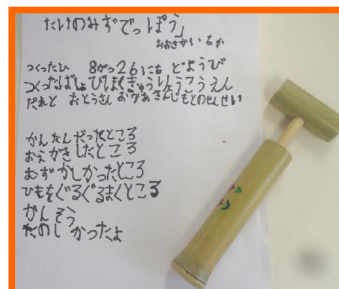 たけのみずでっぽう」
おおさかいるか
つくったひ 8がつ26にち どようび
つくったばしょ びほくきゅうりょうこうえん
だれと おとうさん おかあさん じもとのせんせい
かんたんだったところ
おえかきしたところ
むずかしかったところ
ひもをぐるぐるまくところ
かんそう
たのしかったよ